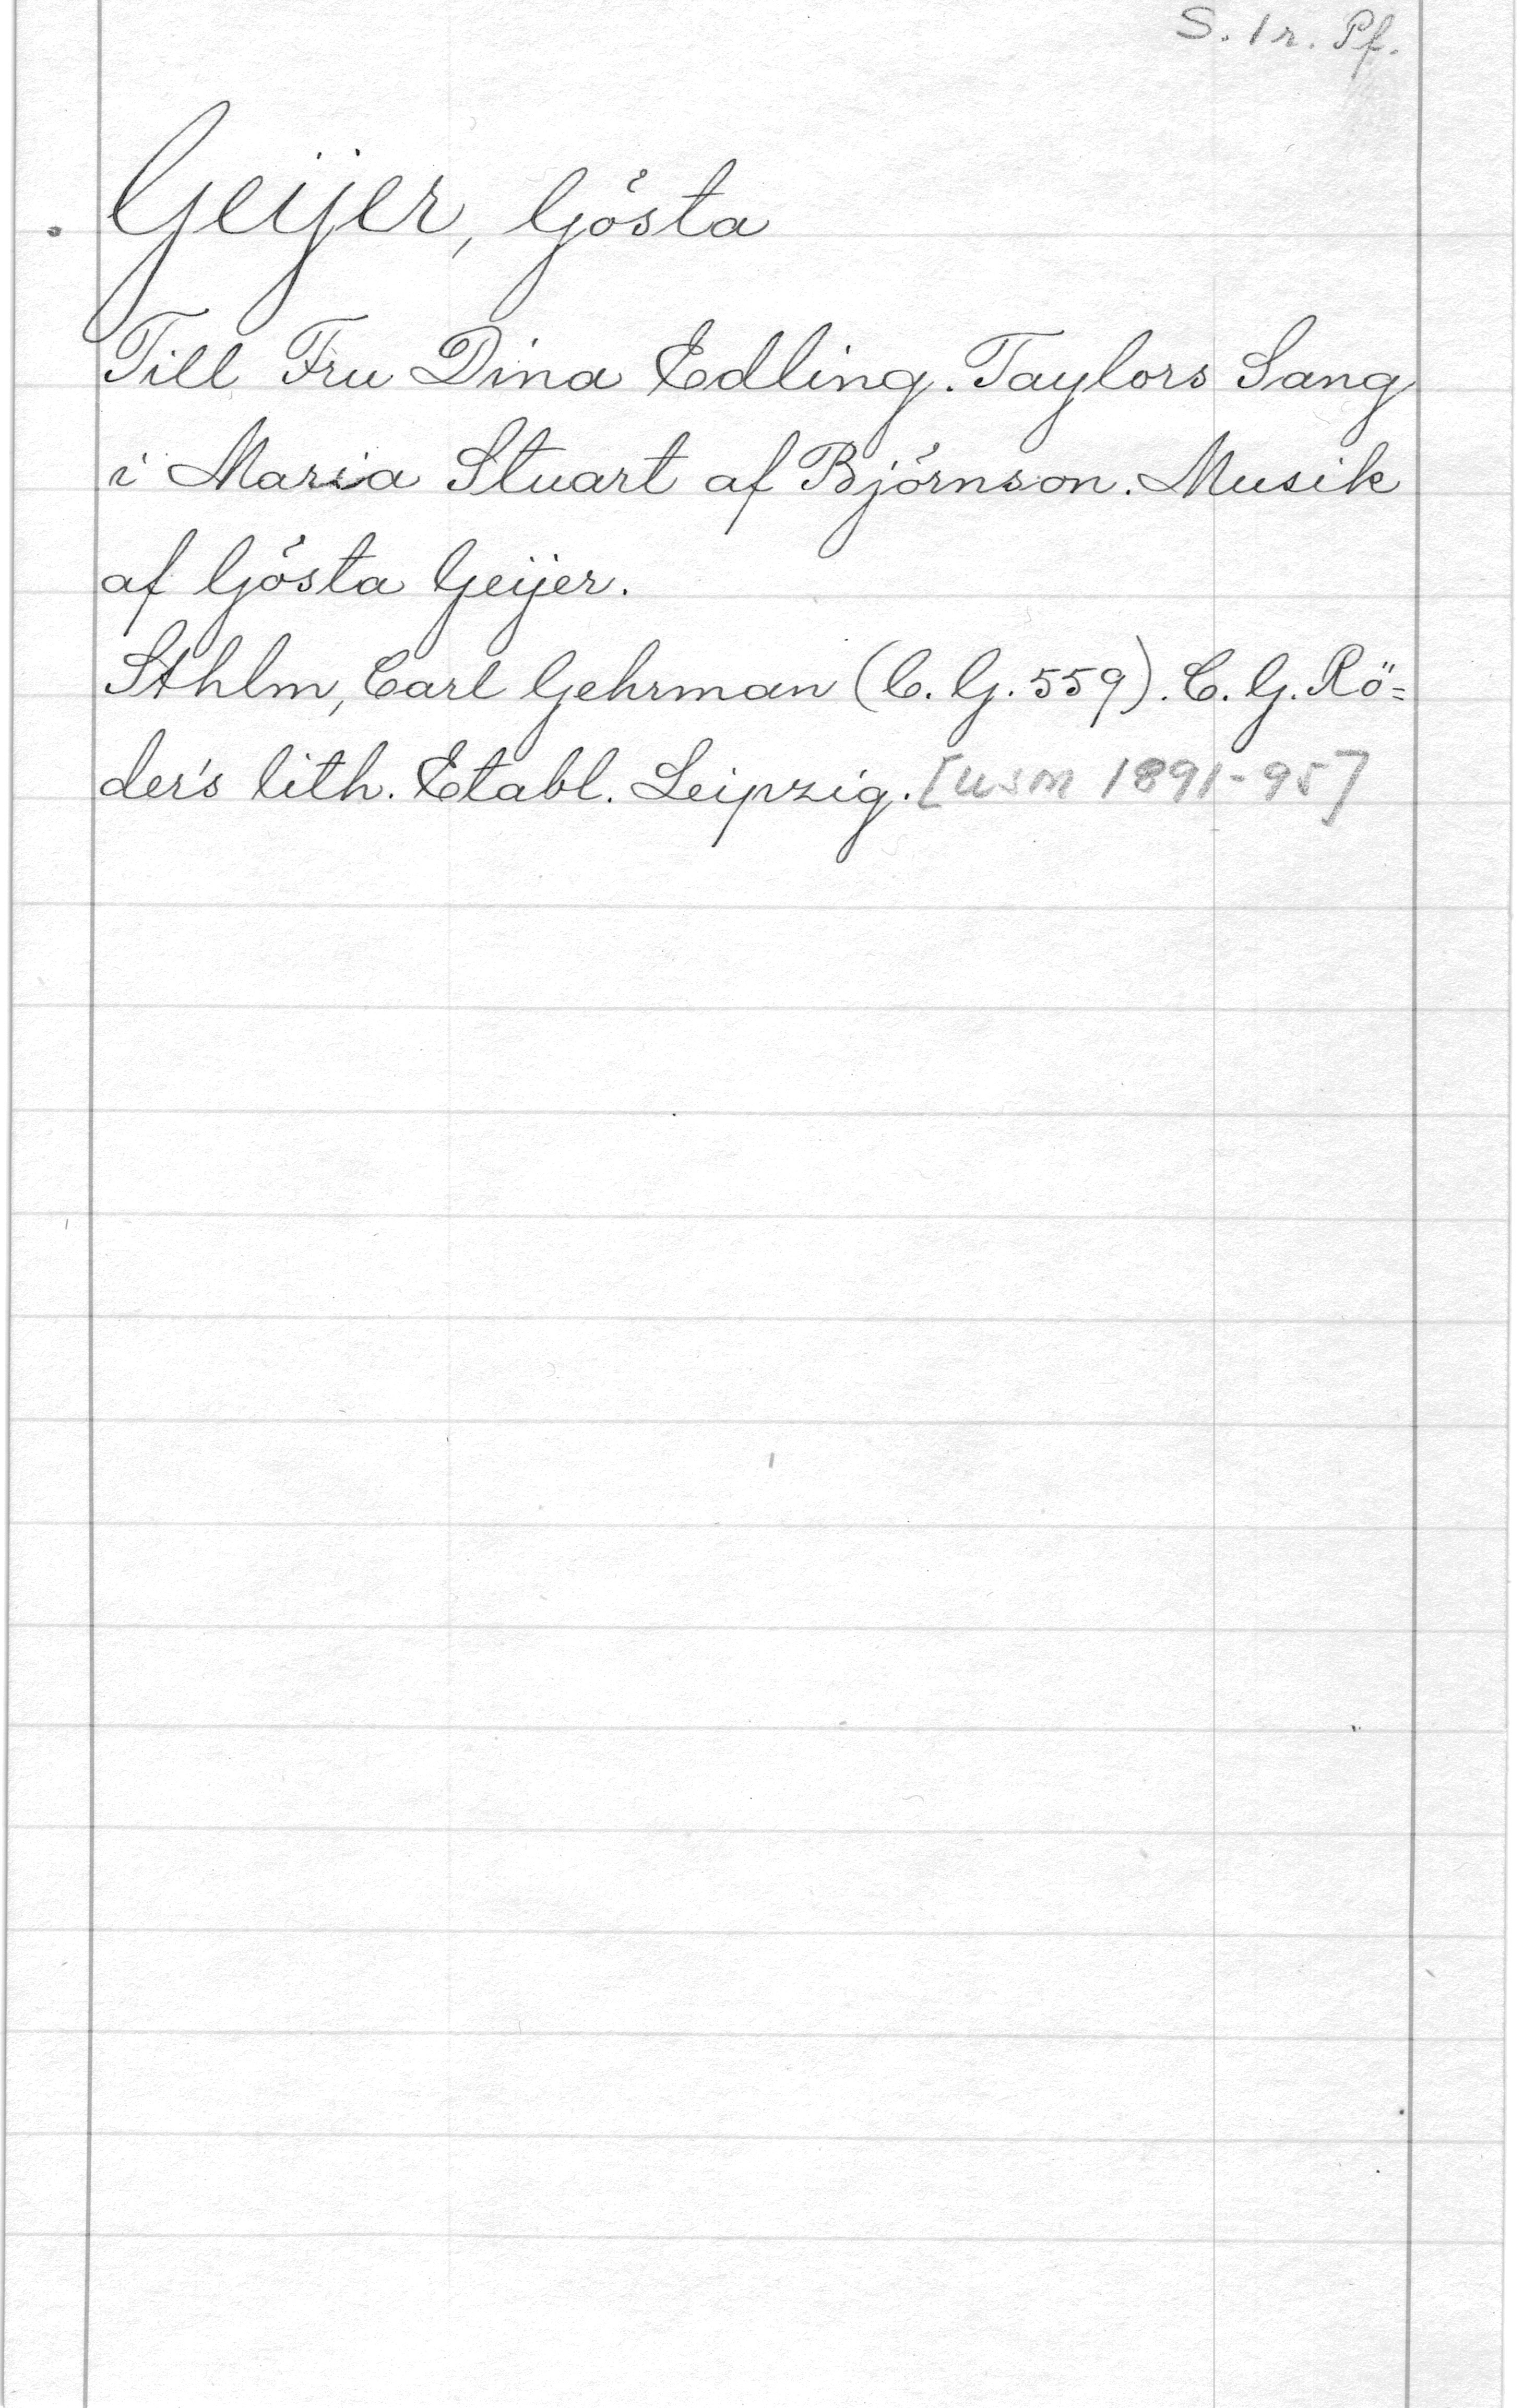 S. 1 r. Pf.
Geijer, Gösta
Till Fru Dina Edling. Taylors Sang
i Maria Stuart af Björnson. Musik
af Gösta Geijer.
Sthlm, Carl Gehrman (C. G. 559). C. G. Rö=
der's lith. Etabl. Leipzig. [USM 1891-95]